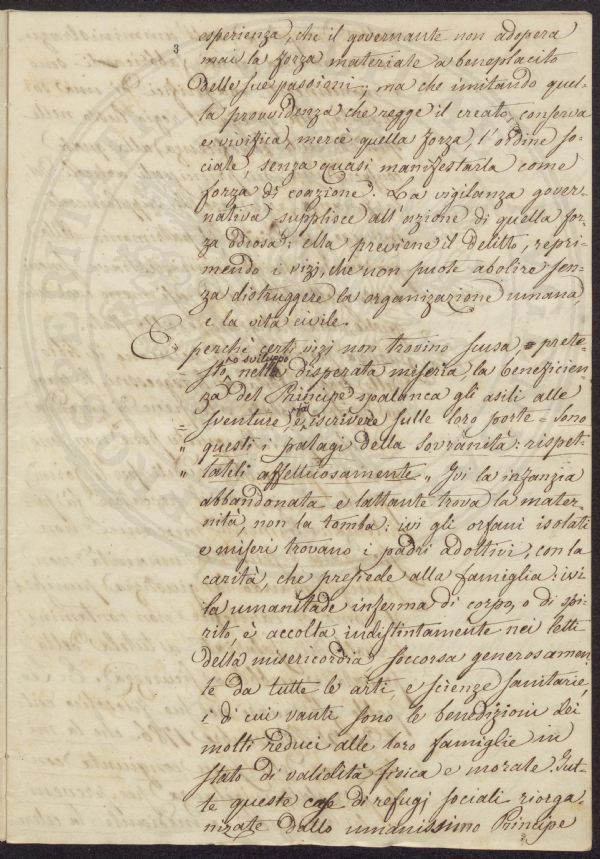 3
esperienza, che il governante non adopera
mai la forza materiale a beneplacito
delle sue passioni; ma che imitando quel-
la provvidenza che regge il creato, conserva
e vivifica, mercè quella forza, l'ordine so-
ciale, senza quasi manifestarla come
forza di coazione. La vigilanza gover-
nativa supplisce all'azione di quella for-
za odiosa: ella previene il delitto, repri-
mendo i vizi, che non puote abolire sen-
za distruggere la organizazione umana
e la vita civile.
E perchè certi vizi non trovino scusa, e prete-
o sviluppo
sto, nella disperata miseria la beneficien
za del Principe spalanca gli asili alle
sventure, e iscrivere sulle loro porte = Sono
" questi i palagi della Sovranità: rispet-
" tatili affettuosamente " Ivi la infanzia
abbandonata e lattante trova la mater-
nità, non la tomba: ivi gli orfani isolati
e miseri trovano i padri adottivi, con la
carità, che presiede alla famiglia: ivi
la umanitade inferma di corpo, o di spi-
rito, è accolta indistintamente nei letti
della misericordia, soccorsa generosamen
te da tutte le arti, e scienze sanitarie,
i di cui vanti sono le benedizioni dei
molti reduci alle loro famiglie in
stato di validità fisica e morale. Tut-
te queste case di refugj sociali riorga-
nizate dallo umanissimo Principe